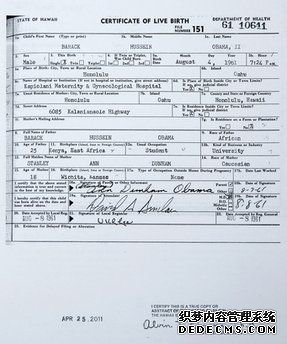 STATE OF HAWAII CERTIFICATE OF LIVE BIRTH DEPARTMENT OF HEALTH
FILE NUMBER 151 61 10641
1a. Child's First Name (Type or print) 1b. Middle Name 1c. Last Name
BARACK HUSSEIN OBAMA, II
2. Sex 3. This Birth 4. If Twin or Triplet, Was Child Born 5a. Birth Date Month Day Year 5b. Hour
Male Single Twin Triplet 1st 2nd 3rd August 4, 1961 7:24 P.M.
6a. Place of Birth: City, Town or Rural Location 6b. Island
Honolulu Oahu
6c. Name of Hospital or Institution (If not in hospital or institution, give street address) 6d. Is Place of Birth Inside City or Town Limits?
Kapiolani Maternity & Gynecological Hospital
7a. Usual Residence of Mother: City, Town or Rural Location 7b. Island 7c. County and State or Foreign Country
Honolulu Oahu Honolulu, Hawaii
7d. Street Address 7e. Is Residence Inside City or Town Limits?
6085 Kalanianaole Highway
7f. Mother's Mailing Address 7g. Is Residence on a Farm or Plantation?
8. Full Name of Father 9. Race of Father
BARACK HUSSEIN OBAMA African
10. Age of Father 11. Birthplace (Island, State or Foreign Country) 12a. Usual Occupation 12b. Kind of Business or Industry
25 Kenya, East Africa Student University
13. Full Maiden Name of Mother 14. Race of Mother
STANLEY ANN DUNHAM Caucasian
15. Age of Mother 16. Birthplace (Island, State or Foreign Country) 17a. Type of Occupation Outside Home During Pregnancy 17b. Date Last Worked
18 Wichita, Kansas None
I certify that the above stated information is true and correct to the best of my knowledge. 18a. Signature of Parent or Other Informant Parent Other 18b. Date of Signature
(Stanley) Ann Dunham Obama 8-7-61
I hereby certify that this child was born alive on the date and hour stated above. 19a. Signature of Attendant M.D. D.O. Midwife Other 19b. Date of Signature
David A. Sinclair 8-8-61
20. Date Accepted by Local Reg. 21. Signature of Local Registrar 22. Date Accepted by Reg. General
AUG -8 1961 AUG -8 1961
23. Evidence for Delayed Filing or Alteration
APR 25 2011
I CERTIFY THIS IS A TRUE COPY OR
ABSTRACT OF
THE HAWAII
Alvin
织梦内容管理系统
DEDECMS.COM